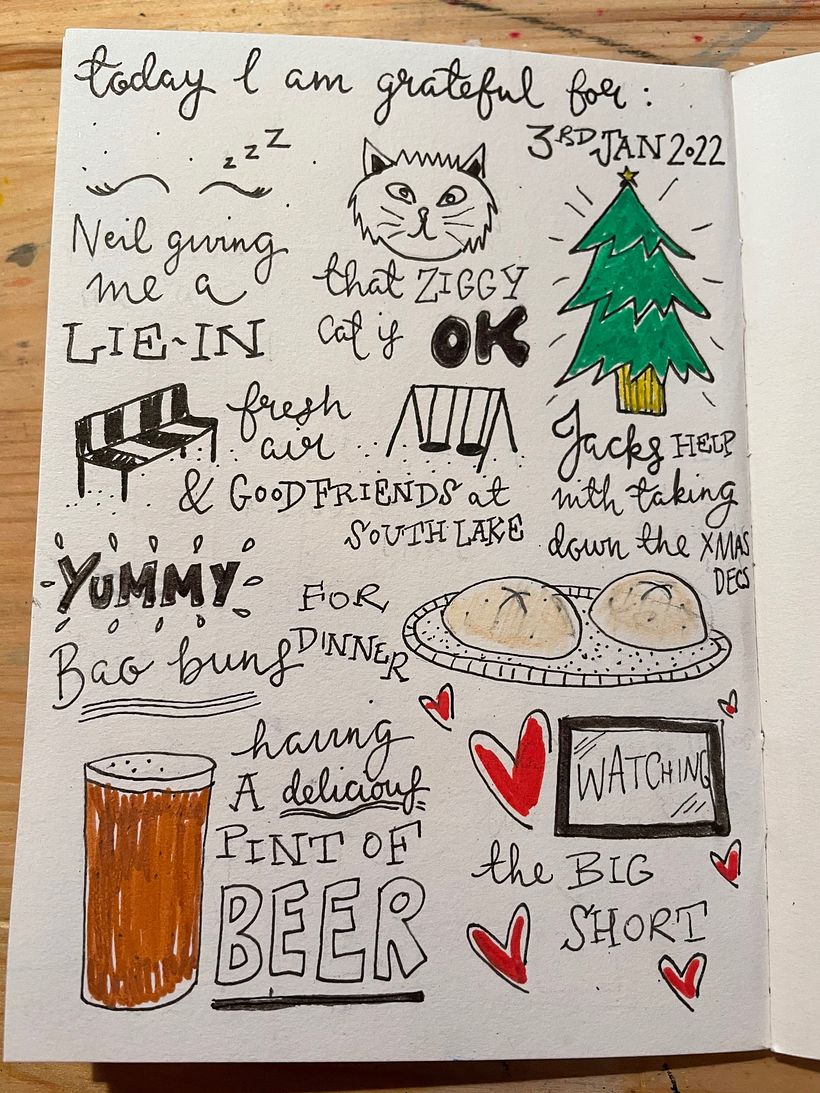 today I am grateful for:
3RD JAN 2022
z z Z
Neil giving
me a
LIE-IN
that ZIGGY
cat is OK
Jacks HELP
with taking
down the XMAS
DECS
fresh
air
& GOOD FRIENDS at
SOUTH LAKE
YUMMY
Bao buns
FOR
DINNER
having
A delicious
PINT OF
BEER
WATCHING
the BIG
SHORT